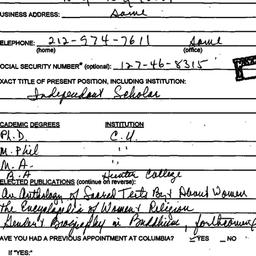 BUSINESS ADDRESS: Same
TELEPHONE: 212-974-7611 Same
(home) (office)
SOCIAL SECURITY NUMBER* (optional): 127-46-8315
EXACT TITLE OF PRESENT POSITION, INCLUDING INSTITUTION:
Independent Scholar
ACADEMIC DEGREES INSTITUTION
Ph.D. C.U.
M. Phil "
M.A. "
B.A. Hunter College
SELECTED PUBLICATIONS (continue on reverse):
An Anthology of Sacred Texts By & About Women
the Encyclopedia of Women & Religion
Gender & Biography in Buddhism, forthcoming
HAVE YOU HAD A PREVIOUS APPOINTMENT AT COLUMBIA? YES NO
If "YES:"